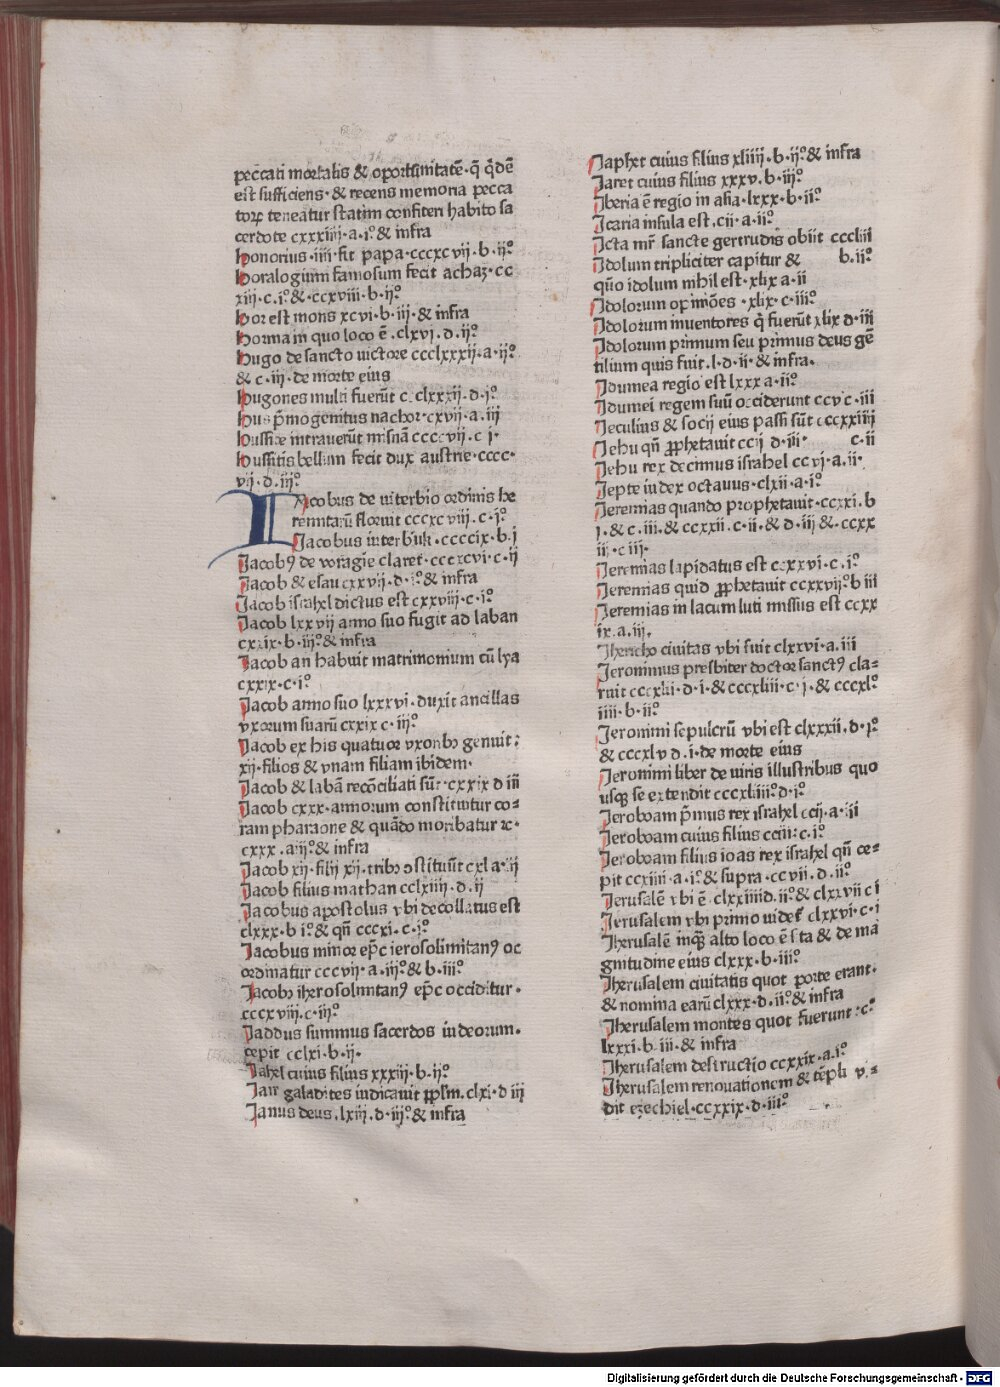 peccati mortalis & oportunitatē · q̄ q̇dē
est sufficiens · & recens memoria pecca
torꝝ teneātur statim confiteri habito sa
cerdote cxxxiiij · a · i° & infra
Honorius · iiij · fit papa · cccxcvij · b · ij°
Horalogium famosum fecit achaz · cc
xiij · c · i° & · ccxviii · b · ij°
Hor est mons xcvi · b · iij · & infra
Horma in quo loco ē · clxvi · d · ij°
Hugo de sancto victore ccclxxxij · a · ij°
& c · iij · de morte eius
Hugones multi fuerūt ccclxxxij · d · i°
Hus p̄mogenitus nachor · cxvij · a · iij
Hussite intrauerūt misnā ccccvij · c i ·
Hussitis bellum fecit dux austrie · cccc ·
vij · d · iij°
IAcobus de viterbio ordinis he
remitarū floruit cccxcviij · c · i°
Jacobus interbuk · ccccix · b · i
Jacobꝰ de voragie claret · cccxcvi · c · ij
Jacob & esau cxxvij · d · i° & infra
Jacob israhel dictus est cxxviij · c · i°
Jacob lxxvij anno suo fugit ad laban
cxxix · b · iij° & infra
Jacob an habuit matrimonium cū lya
cxxix · c · i°
Jacob anno suo lxxxvi · duxit ancillas
vxorum suarū cxxix c · iij°
Jacob ex his quatuor vxoribꝰ genuit :
xij · filios & vnam filiam ibidem ·
Jacob & labā recōciliati sūt · cxxix d iij
Jacob cxxx · annorum constituitur co=
ram pharaone & quādo moribatur ꝛc ·
cxxx · a · ij° & infra
Jacob xij · filij xij · tribꝰ ɔstituūt cxl a · ij
Jacob filius mathan cclxiiij · d · ij
Jacobus apostolus vbi decollatus est
clxxx · b i° & qn̄ cccxi · c · i°
Jacobus minor ep̄c ierosolimitanꝰ oc
ordinatur cccvij · a · iij° & b · iij°
Jacobꝰ iherosolimitanꝰ ep̄c occiditur ·
cccxviij · c · iij°
Jaddus summus sacerdos iudeorum ·
cepit cclxi · b · ij ·
Jahel cuius filius xxxiij · b · ij°
Jair galadites iudicauit pplm̄ · clxi · d iij
Janus deus · lxiij · d · iij° & infra
Japhet cuius filius xliiij · b · ij° & infra
Jaret cuius filius xxxv · b · iij°
Jberia ē regio in asia · lxxx · b · ij°
Jcaria insula est · cij · a · ij°
Jcta mr̄ sancte gertrudis obiit cccliij
Jdolum tripliciter capitur & b · ij°
qūo idolum nihil est · xlix a · ij
Jdolorum op̄imōes · xlix · c · iij°
Jdolorum inuentores q̇ fuerūt xlix d · iij
Jdolorum primum seu primus deus gē
tilium quis fuit · l · d · ij · & infra ·
Jdumea regio est lxxx a · ij°
Jdumei regem suū occiderunt ccv c · iij
Jeculius & socij eius passi sūt cccxxiiij
Jehu qn̄ ꝓphetauit ccij d · iij · c · ij
Jehu rex decimus israhel ccvi · a · ij ·
Jepte iudex octauus · clxij · a · i°
Jeremias quando prophetauit · ccxxi · b
i · & c · iij · & ccxxij · c · ij · & d · iij & · ccxx
iij · c iij ·
Jeremias lapidatus est ccxxvi · c · i°
Jeremias quid ꝓphetauit ccxxvij° b iij
Jeremias in lacum luti missus est ccxx
ix · a · iij ·
Jhericho ciuitas vbi fuit clxxvi · a · iij
Jeronimus presbiter doctor sanctꝰ cla=
ruit cccxlij · d · i · & cccxliij · c · i · & cccxl°
iiij · b · ij°
Jeronimi sepulcrū vbi est clxxxij · d · i°
& cccxlv d · i · de morte eius
Jeronimi liber de viris illustribus quo
usqꝫ se extendit cccxliij° d · i°
Jeroboam p̄mus rex israhel ccij · a · iij
Jeroboam cuius filius cciij : c · i°
Jeroboam filius ioas rex israhel qn̄ ce=
pit ccxiiij · a · i° & supra · ccvij · d · ij°
Jerusalē vbi ē · clxxiiij d · ij° & clxxvij c i
Jerusalem vbi primo videt᷑ clxxvi · c · i
Jherusalē inqꝫ alto loco ē sita & de ma
gnitudine eius clxxx · b · iij°
Jherusalem ciuitatis quot porte erant ·
& nomina earū clxxx · d · ij° & infra
Jherusalem montes quot fuerunt : c :°
lxxxi · b iij · & infra
Jherusalem destructio ccxxix · a · i°
Jherusalem renouationem & tēpli vi=
dit ezechiel · ccxxix · d · iij°
Digitalisierung gefördert durch die Deutsche Forschungsgemeinschaft - DFG